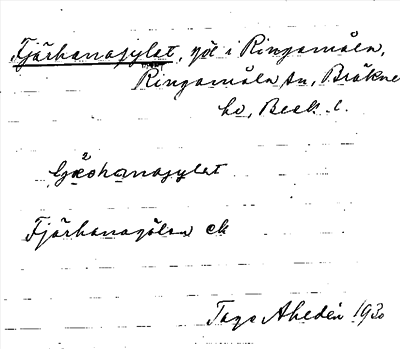 Fjärhanagylet, göl i Ringamåla,
Ringamåla sn, Bräkne
hd, Blek. l.
Fjärhanagölen ek
Tage Ahldén 1930